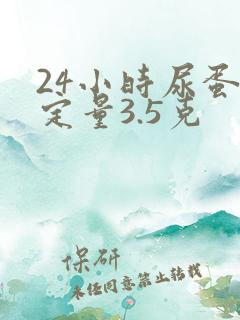 24小时尿蛋
定量3.5克
保研
未经同意禁止转载